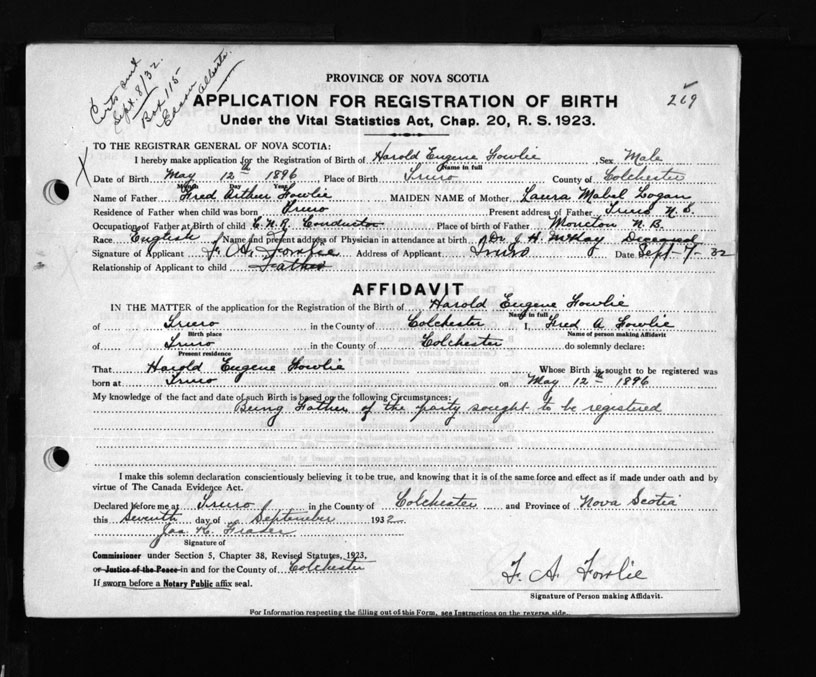 Certs sent
Sept. 8/32.
Box 115
Alberta.
269
PROVINCE OF NOVA SCOTIA
APPLICATION FOR REGISTRATION OF BIRTH
Under the Vital Statistics Act, Chap. 20, R. S. 1923.
TO THE REGISTRAR GENERAL OF NOVA SCOTIA:
I hereby make application for the Registration of Birth of Harold Eugene Fowlie Sex Male
Name in full
Date of Birth May 12th 1896 Place of Birth Truro County of Colchester
Month Day Year
Name of Father Fred Arthur Fowlie MAIDEN NAME of Mother Laura Mabel Hogan
Residence of Father when child was born Truro Present address of Father Truro N. S.
Occupation of Father at Birth of child C.N.R. Conductor Place of birth of Father Moncton N. B.
Race English Name and present address of Physician in attendance at birth Dr. J. H. McKay Deceased
Signature of Applicant F. A. Fowlie Address of Applicant Truro Date Sept-7-32
Relationship of Applicant to child Father
AFFIDAVIT
IN THE MATTER of the application for the Registration of the Birth of Harold Eugene Fowlie
Name in full
of Truro in the County of Colchester I, Fred A. Fowlie
Birth place Name of person making Affidavit
of Truro in the County of Colchester do solemnly declare:
Present residence
That Harold Eugene Fowlie Whose Birth is sought to be registered was
born at Truro on May 12th 1896
My knowledge of the fact and date of such Birth is based on the following Circumstances:
Being Father of the party sought to be registered
I make this solemn declaration conscientiously believing it to be true, and knowing that it is of the same force and effect as if made under oath and by
virtue of The Canada Evidence Act.
Declared before me at Truro in the County of Colchester and Province of Nova Scotia
this Seventh day of September 1932
Jas. K. Fraser
Signature of
Commissioner under Section 5, Chapter 38, Revised Statutes, 1923,
or Justice of the Peace in and for the County of Colchester
If sworn before a Notary Public affix seal.
F. A. Fowlie
Signature of Person making Affidavit.
For Information respecting the filling out of this Form, see Instructions on the reverse side.